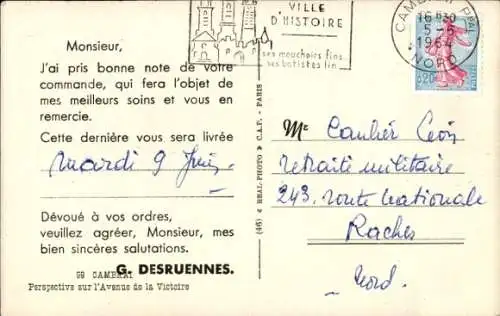 Monsieur,
J'ai pris bonne note de votre
commande, qui fera l'objet de
mes meilleurs soins et vous en
remercie.
Cette dernière vous sera livrée
mardi 9 Juin
Dévoué à vos ordres,
veuillez agréer, Monsieur, mes
bien sincères salutations.
G. DESRUENNES.
99 CAMBRAI
Perspective sur l'Avenue de la Victoire
(46) REAL-PHOTO C.A.P. - PARIS
VILLE
D'HISTOIRE
ses mouchoirs fins
ses batistes lin
CAMBRAI Ppal
16 H30
5-6
1964
NORD
0,20
POSTES
Mr Caulier Léon
retraité militaire
243. route Nationale
Raches
Nord.